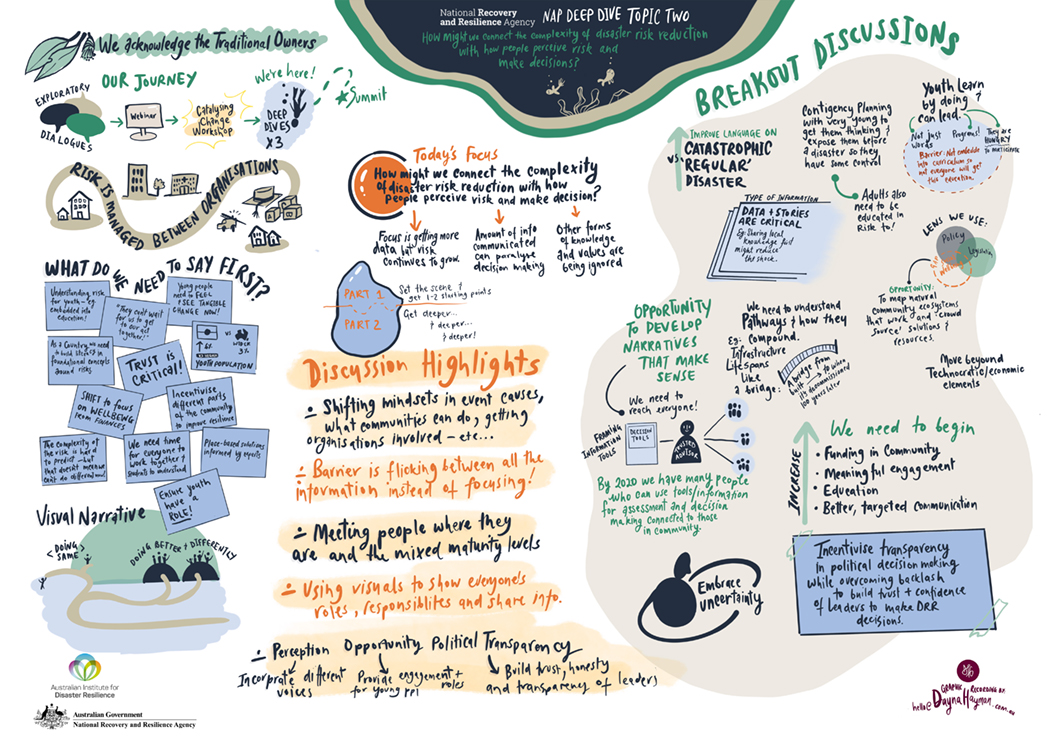 National Recovery
and Resilience Agency
NAP DEEP DIVE TOPIC TWO
How might we connect the complexity of disaster risk reduction
with how people perceive risk and
make decisions?
We acknowledge the Traditional Owners
OUR JOURNEY
EXPLORATORY
DIALOGUES
Webinar
Catalysing
Change
Workshop
We're here!
DEEP
DIVES
x3
Summit
RISK IS MANAGED BETWEEN ORGANISATIONS
WHAT DO WE NEED TO SAY FIRST?
Understanding risk
for youth - eg.
embedded into
education!
"They can't wait
for us to get
to our get
together!"
Young people
need to FEEL
+ SEE TANGIBLE
CHANGE NOW!
As a Country we need
to build
foundational concepts
around risks
TRUST IS
CRITICAL!
VS
6%
3%
YOUTH POPULATION
SHIFT to focus
on WELLBEING
from
Incentivise
different parts
of the community
to improve resilience
The complexity of
the risk is hard
to predict - but
that doesn't mean we
can't do differently!
We need time
for everyone to
work together &
to understand
Place-based solutions
informed by experts
Ensure youth
have a
ROLE!
Visual Narrative
<DOING
SAME>
DOING BETTER + DIFFERENTLY
Australian Institute for
Disaster Resilience
Australian Government
National Recovery and Resilience Agency
Today's Focus
How might we connect the complexity
of disaster risk reduction with how
people perceive risk and make decision?
Focus is getting more
data but risk
continues to grow.
Amount of info
communicated
can paralyse
decision making
Other forms
of knowledge
and values are
being ignored
PART 1
PART 2
Set the scene &
get 1-2 starting points
Get deeper...
& deeper...
& deeper!
Discussion Highlights
Shifting mindsets in event causes,
what communities can do, getting
organisations involved - etc...
Barrier is flicking between all the
information instead of focusing!
Meeting people where they
are and the mixed maturity levels
Using visuals to show everyone's
roles, responsiblites and share info.
Perception Opportunity Political Transparency
Incorprate different
voices
Provide engagement + roles
for young ppl
Build trust, honesty
and transparency of leaders
BREAKOUT DISCUSSIONS
IMPROVE LANGUAGE ON
CATASTROPHIC
vs. 'REGULAR'
DISASTER
Contigency Planning
with very young to
get them thinking &
expose them before
a disaster so they
have some control
Adults also
need to be
educated in
Risk to!
Youth Learn
by doing &
can lead.
Not just
words
Programs!
They are
HUNGRY
to participate
Barrier: Not embedded
into curriculum so
not everyone will get
this education.
TYPE OF INFORMATION
DATA + STORIES
ARE CRITICAL
Eg: Sharing local
knowledge
might reduce
the shock.
LENS WE USE:
Policy
Legislation
OPPORTUNITY:
To map natural
community ecosystems
that work and "crowd
source" solutions &
resources!
OPPORTUNITY
TO DEVELOP
NARRATIVES
THAT MAKE
SENSE
We need to understand
Pathways & how they
compound.
Eg:
Infrastructure
Lifespans
Like
a bridge:
A bridge from
built → to when
it's decommissioned
100 years later
Move beyound
Technocratic/economic
elements
We need to
reach everyone!
FRAMING
INFORMATION
TOOLS
DECISION
TOOLS
TRUSTED
ADVISOR
By 2020 we have many people
who can use tools/information
for assessment and decision
making connected to those
in community.
INCREASE
We need to begin
• Funding in Community
• Meaningful engagement
• Education
• Better, targeted communication
Embrace
uncertainty
Incentivise transparency
in political decision making
while overcoming backlash
to build trust + confidence
of leaders to make DRR
decisions.
GRAPHIC RECORDING BY
hello@DaynaHayman.com.au